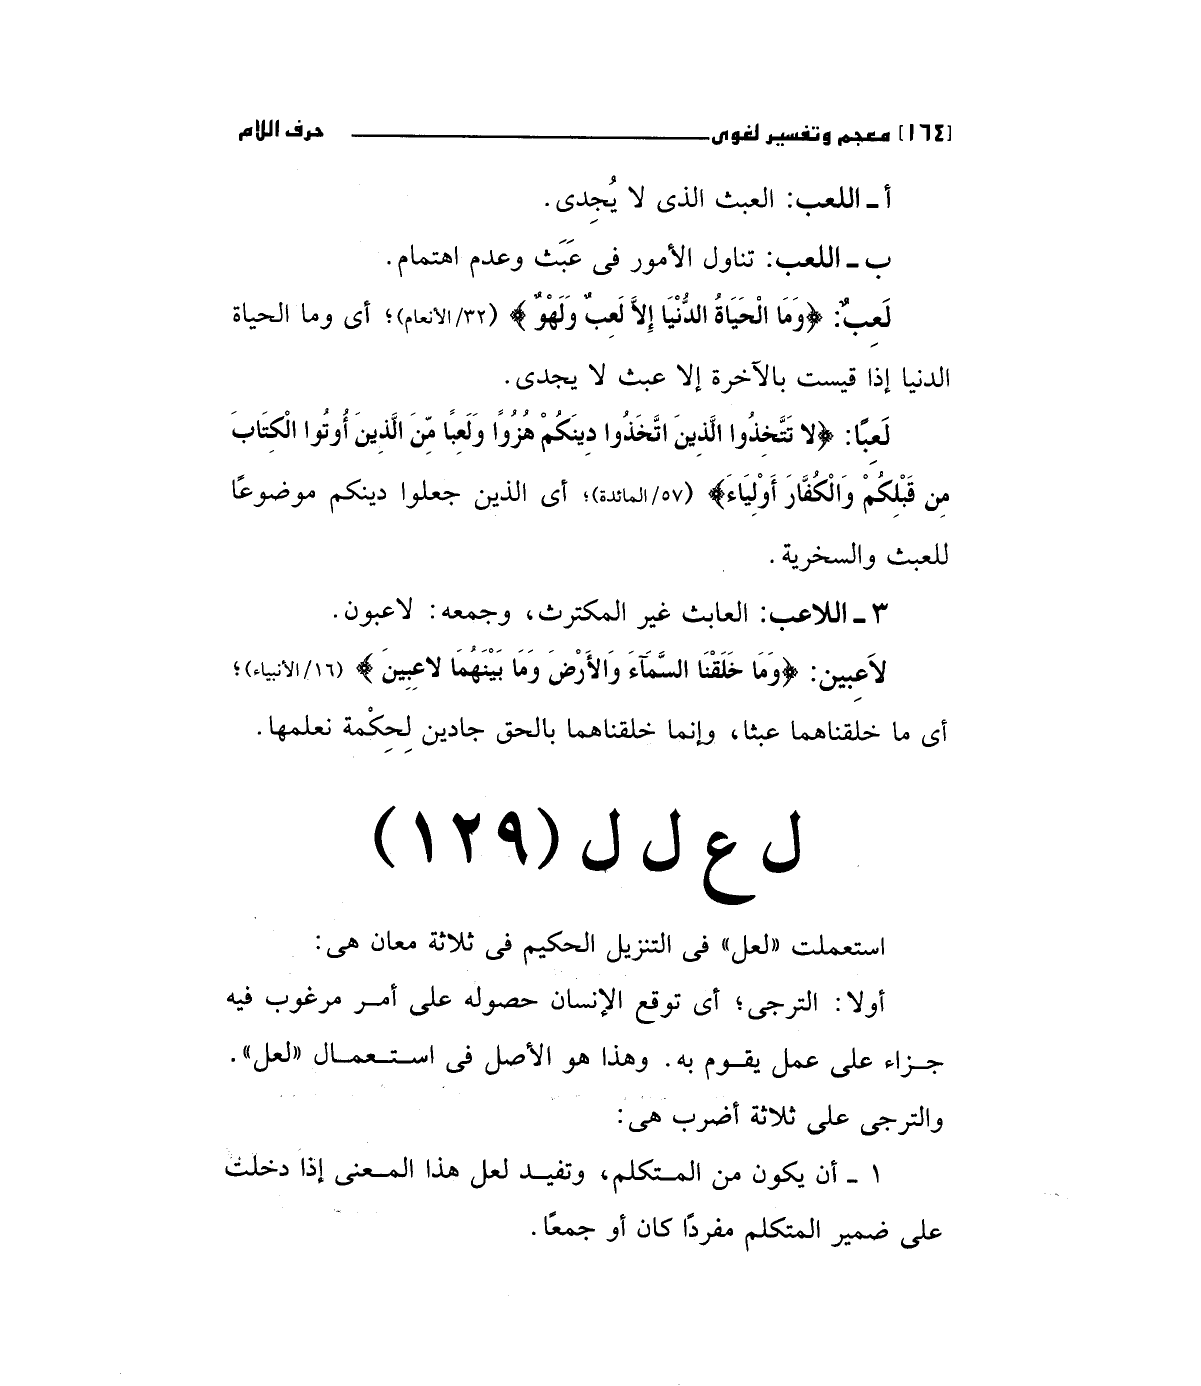 [١٦٤] معجم وتفسير لغوى حرف اللام
أ ـ اللعب: العبث الذى لا يُجدِى.
ب ـ اللعب: تناول الأمور فى عَبَث وعدم اهتمام.
لَعِبٌ: ﴿وَمَا الْحَيَاةُ الدُّنْيَا إِلاَّ لَعِبٌ وَلَهْوٌ﴾ (٣٢/الأنعام)؛ أى وما الحياة
الدنيا إذا قيست بالآخرة إلا عبث لا يجدى.
لَعِبًا: ﴿لا تَتَّخِذُوا الَّذِينَ اتَّخَذُوا دِينَكُمْ هُزُوًا وَلَعِبًا مِّنَ الَّذِينَ أُوتُوا الْكِتَابَ
مِن قَبْلِكُمْ وَالْكُفَّارَ أَوْلِيَاءَ﴾ (٥٧/المائدة)؛ أى الذين جعلوا دينكم موضوعًا
للعبث والسخرية.
٣ ـ اللاعب: العابث غير المكترث، وجمعه: لاعبون.
لاَعِبين: ﴿وَمَا خَلَقْنَا السَّمَآءَ وَالأَرْضَ وَمَا بَيْنَهُمَا لاعِبِينَ﴾ (١٦/الأنبياء)؛
أى ما خلقناهما عبثا، وإنما خلقناهما بالحق جادين لِحِكْمة نعلمها.
ل ع ل ل (١٢٩)
استعملت «لعل» فى التنزيل الحكيم فى ثلاثة معان هى:
أولا: الترجى؛ أى توقع الإنسان حصوله على أمر مرغوب فيه
جزاء على عمل يقوم به. وهذا هو الأصل فى استعمال «لعل».
والترجى على ثلاثة أضرب هى:
١ ـ أن يكون من المتكلم، وتفيد لعل هذا المعنى إذا دخلت
على ضمير المتكلم مفردًا كان أو جمعًا.